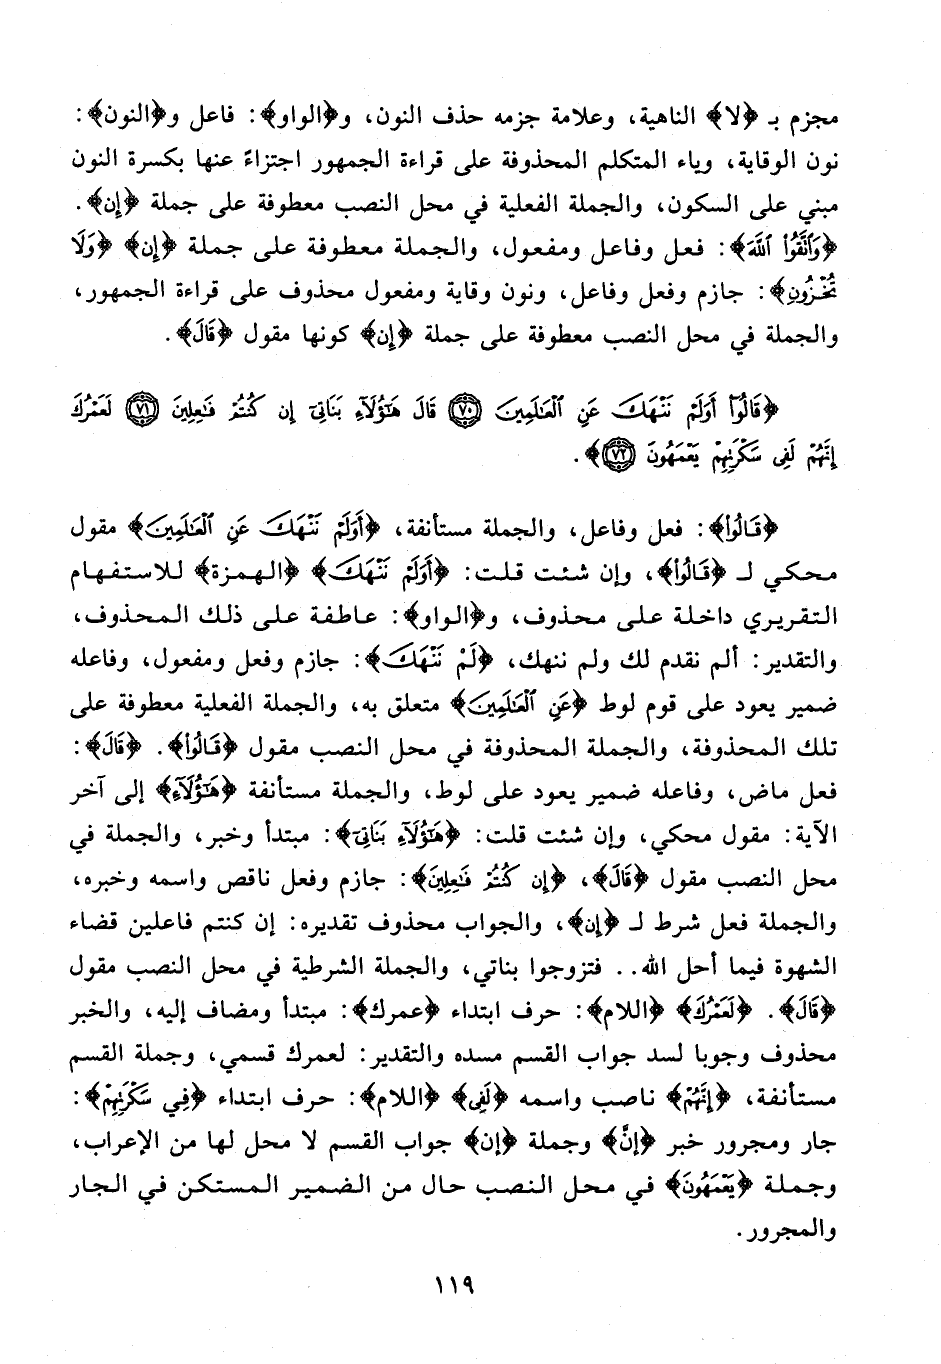 مجزم بـ ﴿لا﴾ الناهية، وعلامة جزمه حذف النون، و﴿الواو﴾: فاعل و﴿النون﴾:
نون الوقاية، وياء المتكلم المحذوفة على قراءة الجمهور اجتزاءً عنها بكسرة النون
مبني على السكون، والجملة الفعلية في محل النصب معطوفة على جملة ﴿إن﴾.
﴿وَٱتَّقُوا۟ ٱللَّهَ﴾: فعل وفاعل ومفعول، والجملة معطوفة على جملة ﴿إن﴾ ﴿وَلَا
تُخْزُونِ﴾: جازم وفعل وفاعل، ونون وقاية ومفعول محذوف على قراءة الجمهور،
والجملة في محل النصب معطوفة على جملة ﴿إن﴾ كونها مقول ﴿قَالَ﴾.
﴿قَالُوٓا۟ أَوَلَمْ نَنْهَكَ عَنِ ٱلْعَـٰلَمِينَ ٧٠ قَالَ هَـٰٓؤُلَآءِ بَنَاتِىٓ إِن كُنتُمْ فَـٰعِلِينَ ٧١ لَعَمْرُكَ
إِنَّهُمْ لَفِى سَكْرَتِهِمْ يَعْمَهُونَ ٧٢﴾.
﴿قَالُوٓا۟﴾: فعل وفاعل، والجملة مستأنفة، ﴿أَوَلَمْ نَنْهَكَ عَنِ ٱلْعَـٰلَمِينَ﴾ مقول
محكي لـ ﴿قَالُوٓا۟﴾، وإن شئت قلت: ﴿أَوَلَمْ نَنْهَكَ﴾ ﴿الهمزة﴾ للاستفهام
التقريري داخلة على محذوف، و﴿الواو﴾: عاطفة على ذلك المحذوف،
والتقدير: ألم نقدم لك ولم ننهك، ﴿لَمْ نَنْهَكَ﴾: جازم وفعل ومفعول، وفاعله
ضمير يعود على قوم لوط ﴿عَنِ ٱلْعَـٰلَمِينَ﴾ متعلق به، والجملة الفعلية معطوفة على
تلك المحذوفة، والجملة المحذوفة في محل النصب مقول ﴿قَالُوٓا۟﴾. ﴿قَالَ﴾:
فعل ماض، وفاعله ضمير يعود على لوط، والجملة مستأنفة ﴿هَـٰٓؤُلَآءِ﴾ إلى آخر
الآية: مقول محكي، وإن شئت قلت: ﴿هَـٰٓؤُلَآءِ بَنَاتِىٓ﴾: مبتدأ وخبر، والجملة في
محل النصب مقول ﴿قَالَ﴾، ﴿إِن كُنتُمْ فَـٰعِلِينَ﴾: جازم وفعل ناقص واسمه وخبره،
والجملة فعل شرط لـ ﴿إن﴾، والجواب محذوف تقديره: إن كنتم فاعلين قضاء
الشهوة فيما أحل الله.. فتزوجوا بناتي، والجملة الشرطية في محل النصب مقول
﴿قَالَ﴾. ﴿لَعَمْرُكَ﴾ ﴿اللام﴾: حرف ابتداء ﴿عمرك﴾: مبتدأ ومضاف إليه، والخبر
محذوف وجوبا لسد جواب القسم مسده والتقدير: لعمرك قسمي، وجملة القسم
مستأنفة، ﴿إِنَّهُمْ﴾ ناصب واسمه ﴿لَفِى﴾ ﴿اللام﴾: حرف ابتداء ﴿فِي سَكْرَتِهِمْ﴾:
جار ومجرور خبر ﴿إنَّ﴾ وجملة ﴿إن﴾ جواب القسم لا محل لها من الإعراب،
وجملة ﴿يَعْمَهُونَ﴾ في محل النصب حال من الضمير المستكن في الجار
والمجرور.
١١٩